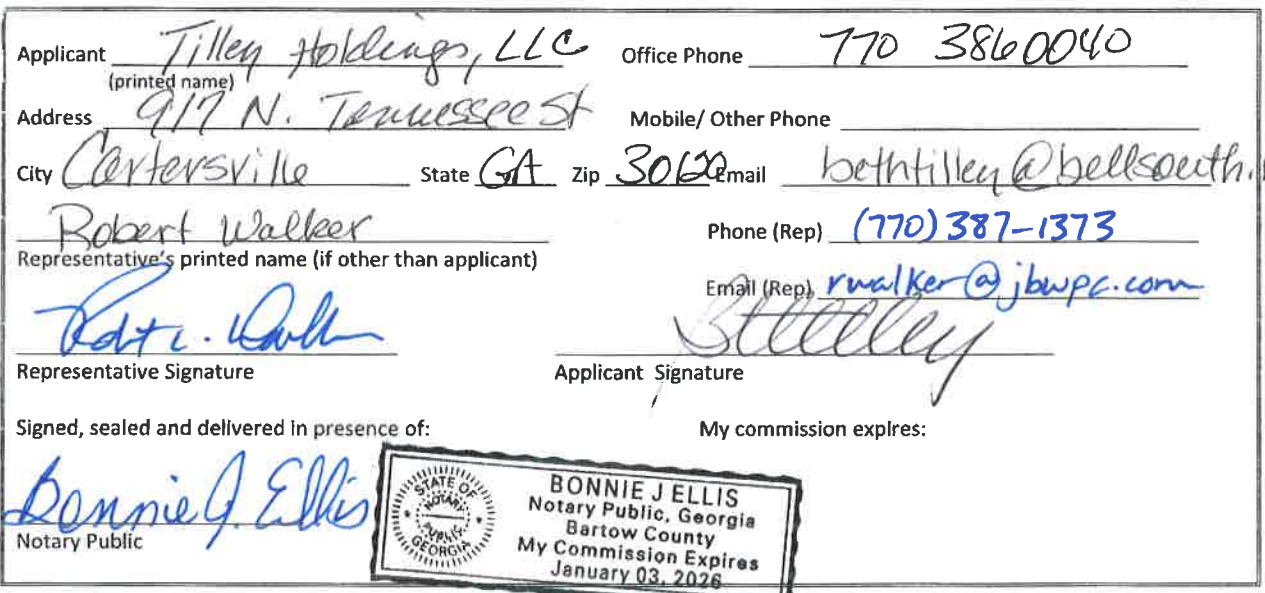 Applicant Tilley Holdings, LLC Office Phone 770 3860040
(printed name)
Address 917 N. Tennessee St Mobile/ Other Phone
City Cartersville State GA Zip 30120 Email bethtilley@bellsouth.
Robert Walker Phone (Rep) (770) 387-1373
Representative's printed name (if other than applicant)
Email (Rep) rwalker@jbwpc.com
Representative Signature Applicant Signature
Signed, sealed and delivered in presence of: My commission expires:
Bonnie J. Ellis
Notary Public
STATE OF GEORGIA
NOTARY PUBLIC
BONNIE J ELLIS
Notary Public, Georgia
Bartow County
My Commission Expires
January 03, 2026